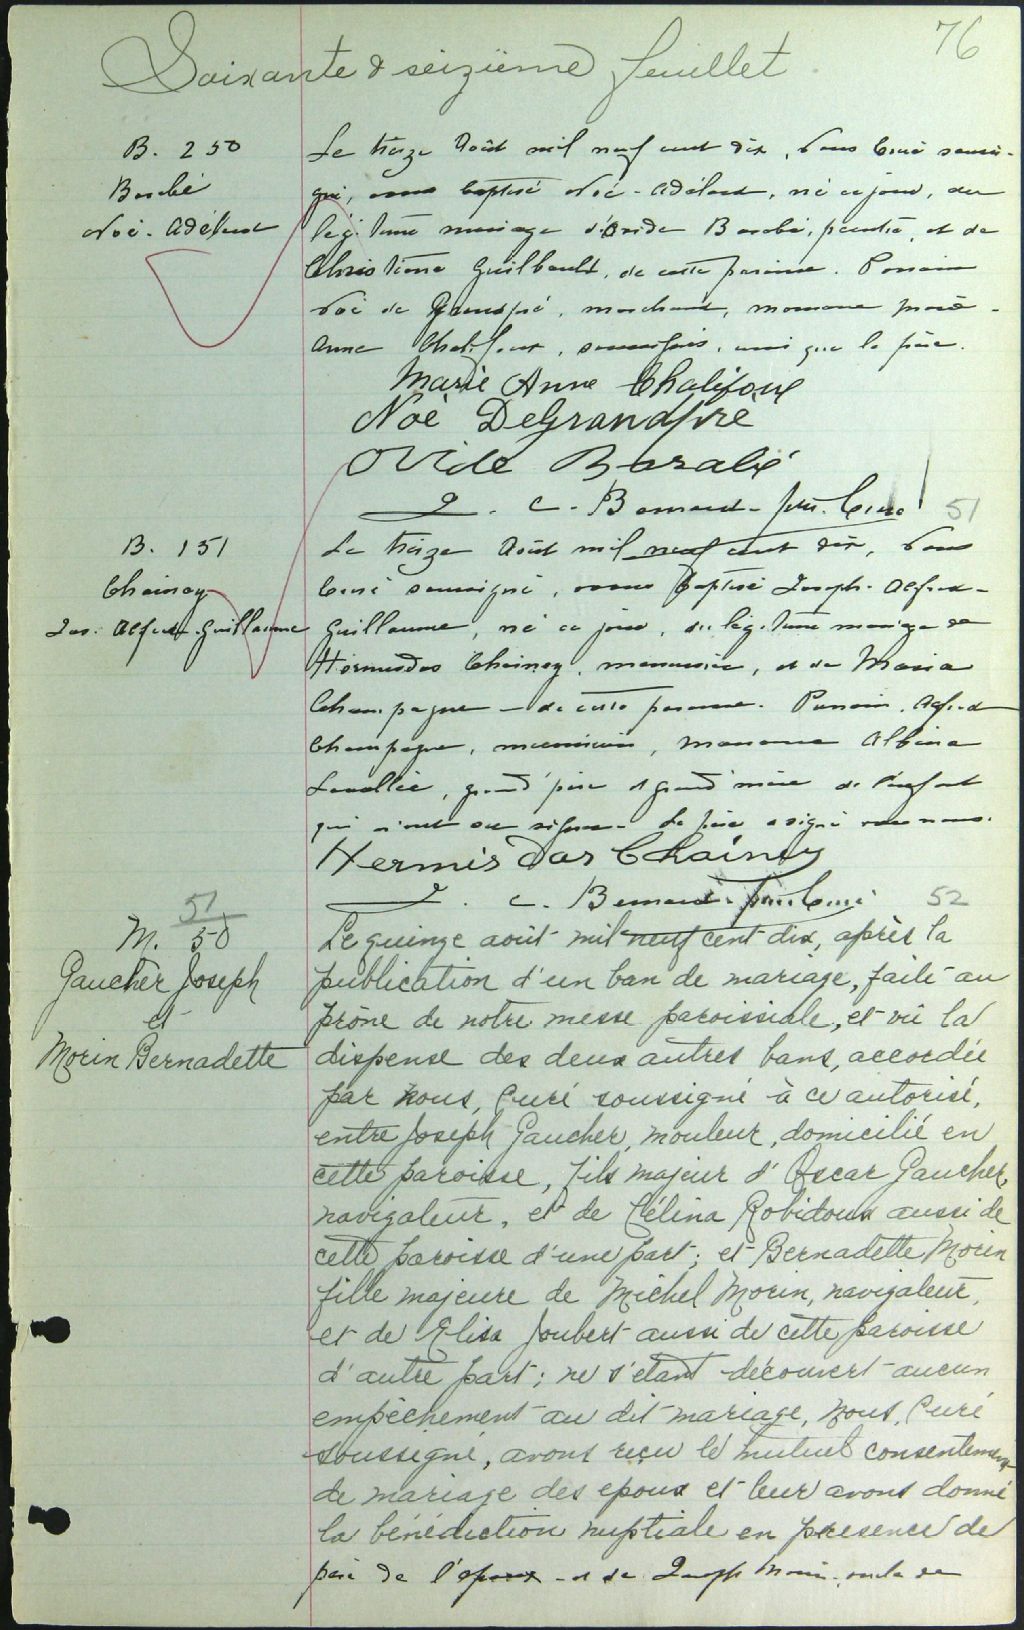 76
Soixante & seizième feuillet.
B. 250
Barabé
Noé-Adélard
Le treize Août mil neuf cent dix, Nous Curé soussi-
gné, avons baptisé Noé-Adélard, né ce jour, du
légitime mariage d'Ovide Barabé, peintre, et de
Christiana Guilbault, de cette paroisse. Parrain
Noé de Grandpré, marchand, marraine Marie-
Anne Chalifoux, soussignés, ainsi que le père.
Marie Anne Chalifoux
Noé DeGrandpré
Ovide Barabé
C. Bernard ptre. Curé
51
B. 151
Chainey
Jos. Alfred-Guillaume
Le treize Août mil neuf cent dix, Nous
Curé soussigné, avons baptisé Joseph-Alfred-
Guillaume, né ce jour, du légitime mariage de
Hormisdas Chainey, menuisier, et de Maria
Champagne de cette paroisse. Parrain, Alfred
Champagne, menuisier, marraine Albina
Lavallée, grand'père & grand'mère de l'enfant
qui n'ont su signer. Le père a signé avec nous.
Hermisdas Chainey
C. Bernard ptre Curé
52
51
M. 50
Gaucher Joseph
et
Morin Bernadette
Le quinze août mil neuf cent dix, après la
publication d'un ban de mariage, faite au
prône de notre messe paroissiale, et vu la
dispense des deux autres bans, accordée
par nous, Curé soussigné à ce autorisé,
entre Joseph Gaucher, mouleur, domicilié en
cette paroisse, fils majeur d'Oscar Gaucher,
navigateur, et de Célina Robidoux aussi de
cette paroisse d'une part; et Bernadette Morin
fille majeure de Michel Morin, navigateur,
et de Elisa Joubert aussi de cette paroisse
d'autre part; ne s'étant découvert aucun
empêchement au dit mariage, nous, Curé
soussigné, avons reçu le mutuel consentement
de mariage des epoux et leur avons donné
la bénédiction nuptiale en présence de
père de l'époux et de Joseph Morin, oncle de